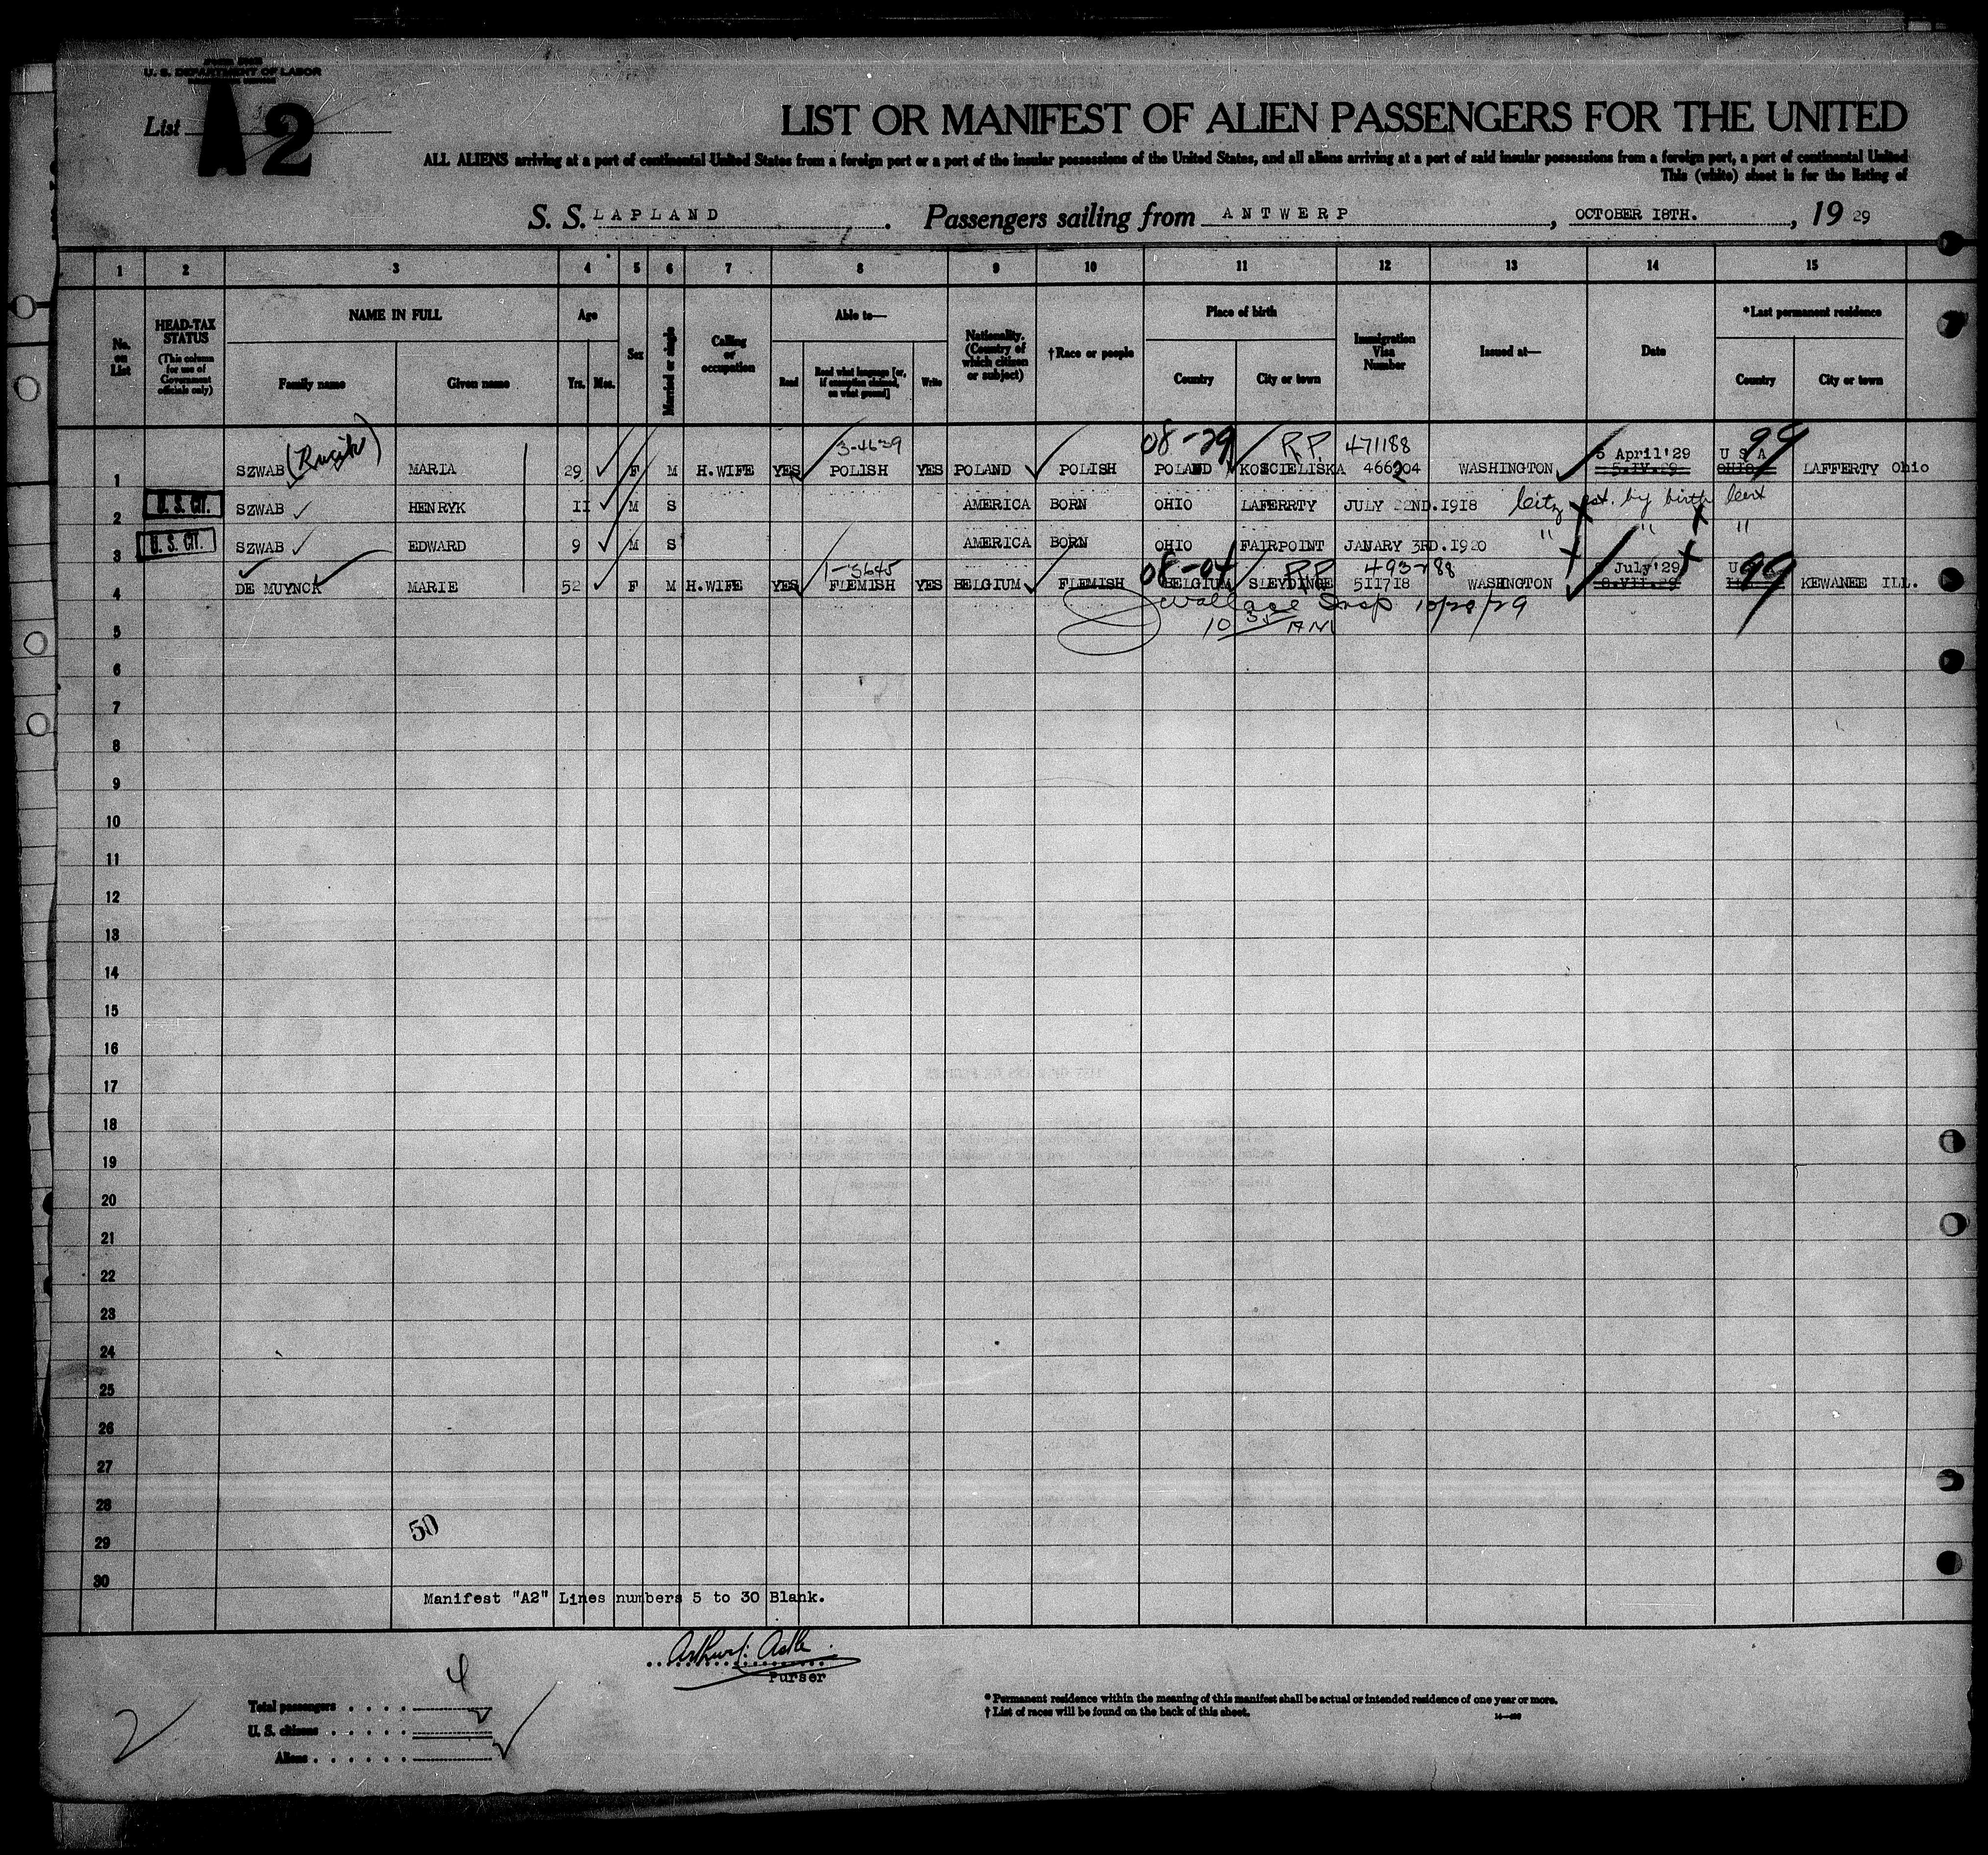 U. S. DEPARTMENT OF LABOR
List A2
LIST OR MANIFEST OF ALIEN PASSENGERS FOR THE UNITED
ALL ALIENS arriving at a port of continental United States from a foreign port or a port of the insular possessions of the United States, and all aliens arriving at a port of said insular possessions from a foreign port, a port of continental United
This (white) sheet is for the listing of
S. S. LAPLAND. Passengers sailing from ANTWERP, OCTOBER 18TH., 1929
1 2 3 4 5 6 7 8 9 10 11 12 13 14 15
No. on List
HEAD-TAX STATUS (This column for use of Government officials only)
NAME IN FULL
Family name Given name
Age
Yrs. Mos.
Sex
Married or single
Calling or occupation
Able to—
Read Read what language [or, if exemption claimed, on what ground] Write
Nationality. (Country of which citizen or subject)
†Race or people
Place of birth
Country City or town
Immigration Visa Number
Issued at—
Date
*Last permanent residence
Country City or town
3-4639 08-29 P.P. 471188 5 April'29 U S A 99
1 SZWAB MARIA 29 F M H.WIFE YES POLISH YES POLAND POLISH POLAND KOSCIELISKA 466204 WASHINGTON 5.IV.29 OHIO LAFFERTY Ohio
2 U. S. CIT. SZWAB HENRYK II M S AMERICA BORN OHIO LAFERRTY JULY 22ND.1918 by birth
3 U. S. CIT. SZWAB EDWARD 9 M S AMERICA BORN OHIO FAIRPOINT JANARY 3RD.1920 " " "
1-3645 08-04 P.P. 493288 July'29 99
4 DE MUYNCK MARIE 52 F M H.WIFE YES FLEMISH YES BELGIUM FLEMISH BELGIUM SLEYDINGE 5II718 WASHINGTON 8.VII.29 KEWANEE ILL.
Wallace Insp 10/28/29
10 35 AM
5
6
7
8
9
10
11
12
13
14
15
16
17
18
19
20
21
22
23
24
25
26
27
28
29
30
50
Manifest "A2" Lines numbers 5 to 30 Blank.
Purser
Total passengers . . . . 4
U. S. citizens . . . . .
Aliens . . . . . .
2
* Permanent residence within the meaning of this manifest shall be actual or intended residence of one year or more.
† List of races will be found on the back of this sheet.